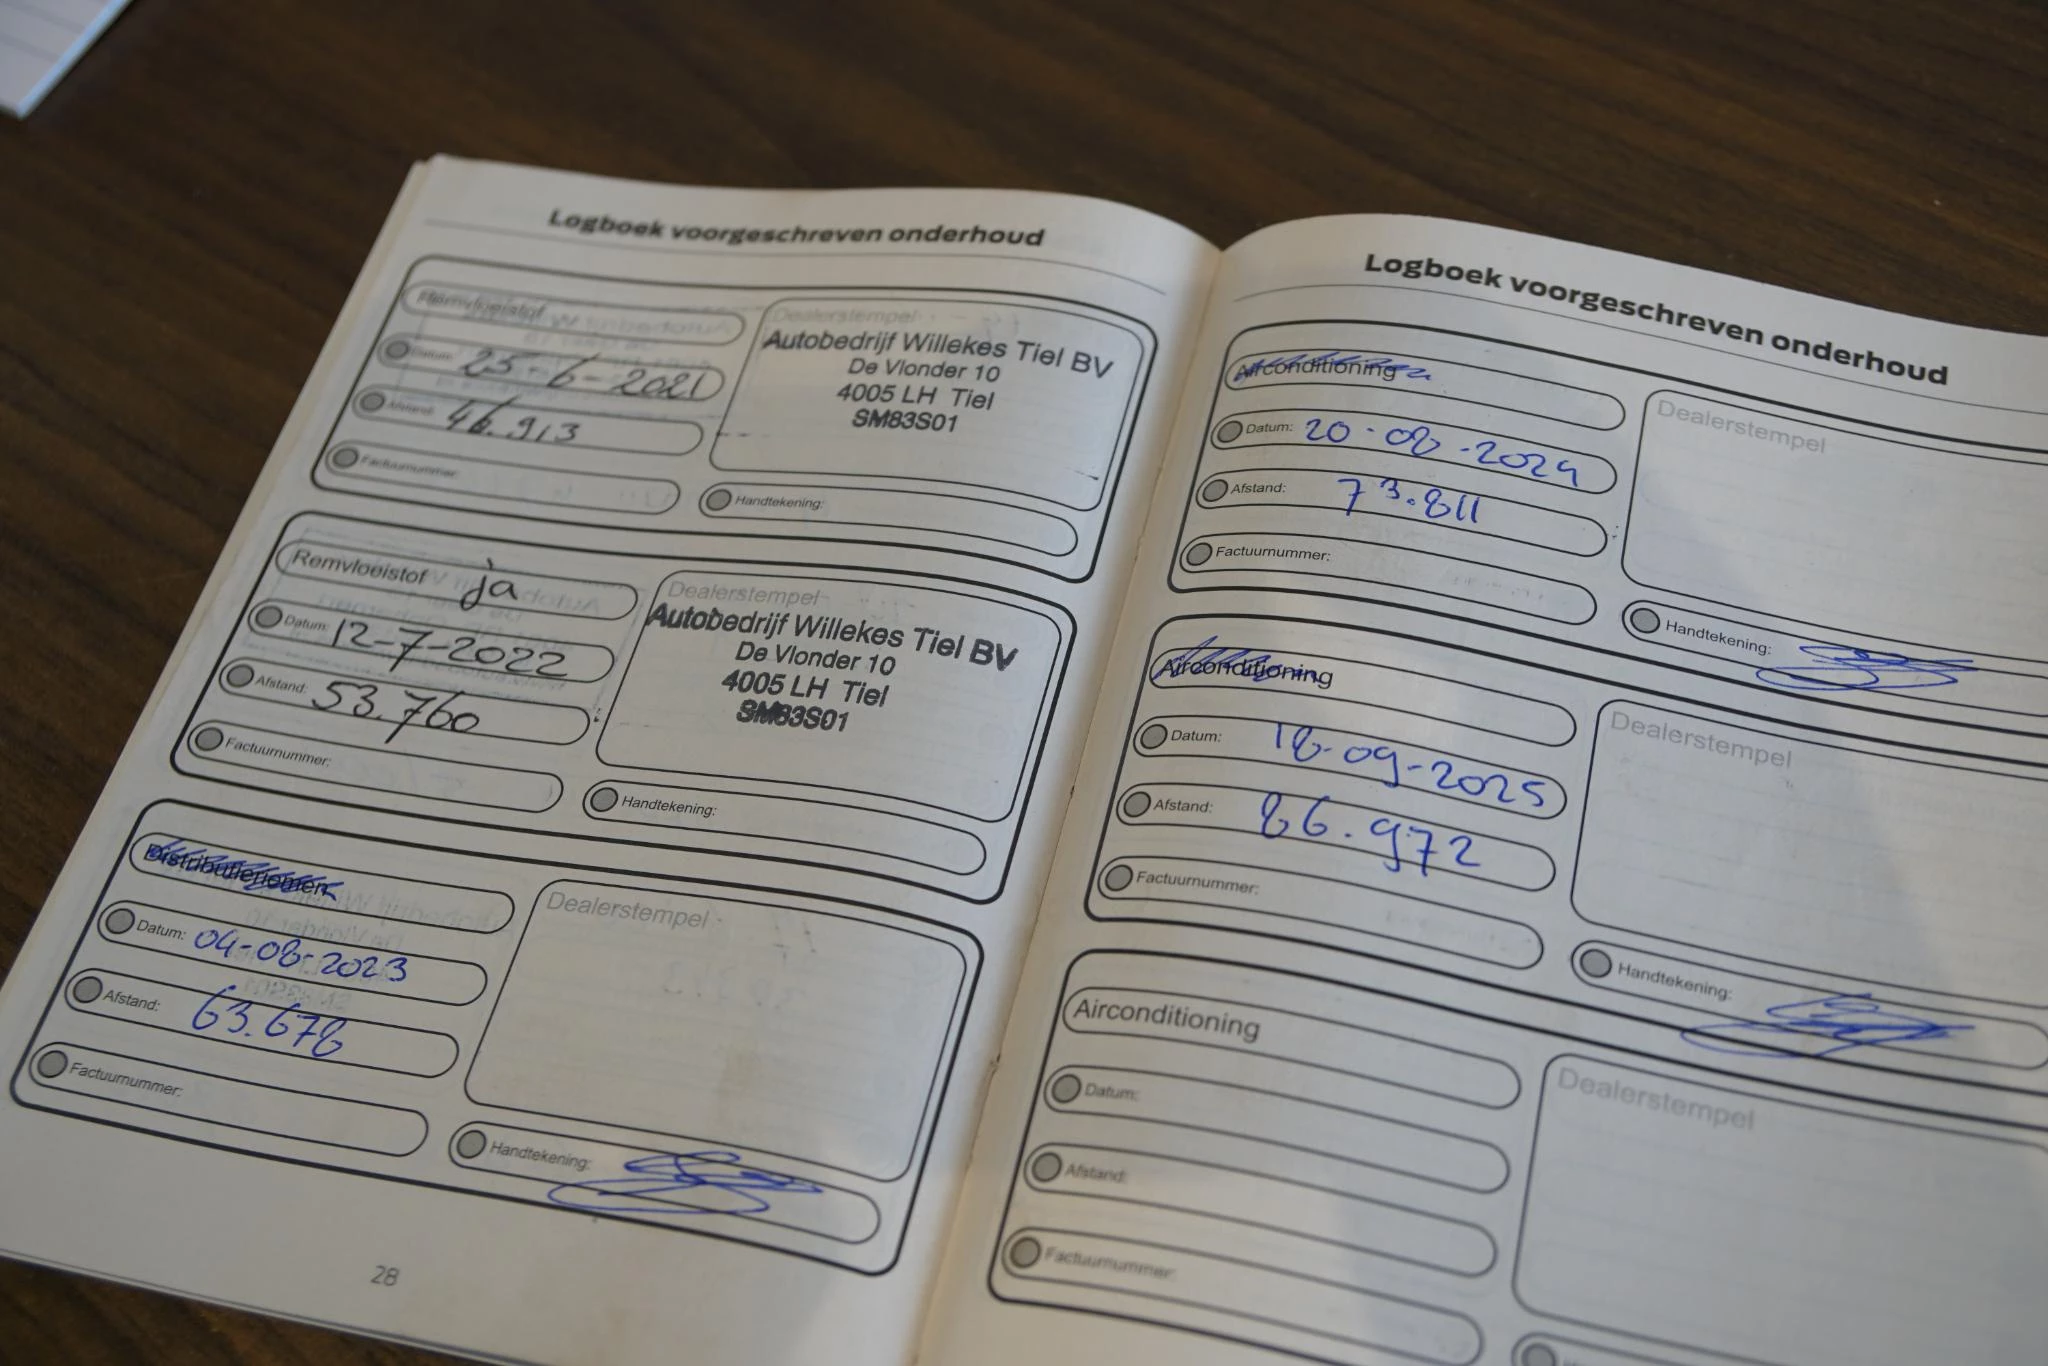 Logboek voorgeschreven onderhoud
Remvloeistof
Datum: 25-6-2021
Afstand: 46.913
Factuurnummer:
Dealerstempel
Autobedrijf Willekes Tiel BV
De Vlonder 10
4005 LH Tiel
SM83S01
Handtekening:
Remvloeistof ja
Datum: 12-7-2022
Afstand: 53.760
Factuurnummer:
Dealerstempel
Autobedrijf Willekes Tiel BV
De Vlonder 10
4005 LH Tiel
SM83S01
Handtekening:
Distributieriemen
Datum: 04-08-2023
Afstand: 63.678
Factuurnummer:
Dealerstempel
Handtekening:
28
Logboek voorgeschreven onderhoud
Airconditioning
Datum: 20-08-2024
Afstand: 73.811
Factuurnummer:
Dealerstempel
Handtekening:
Airconditioning
Datum: 18-09-2025
Afstand: 86.972
Factuurnummer:
Dealerstempel
Handtekening:
Airconditioning
Datum:
Afstand:
Factuurnummer:
Dealerstempel